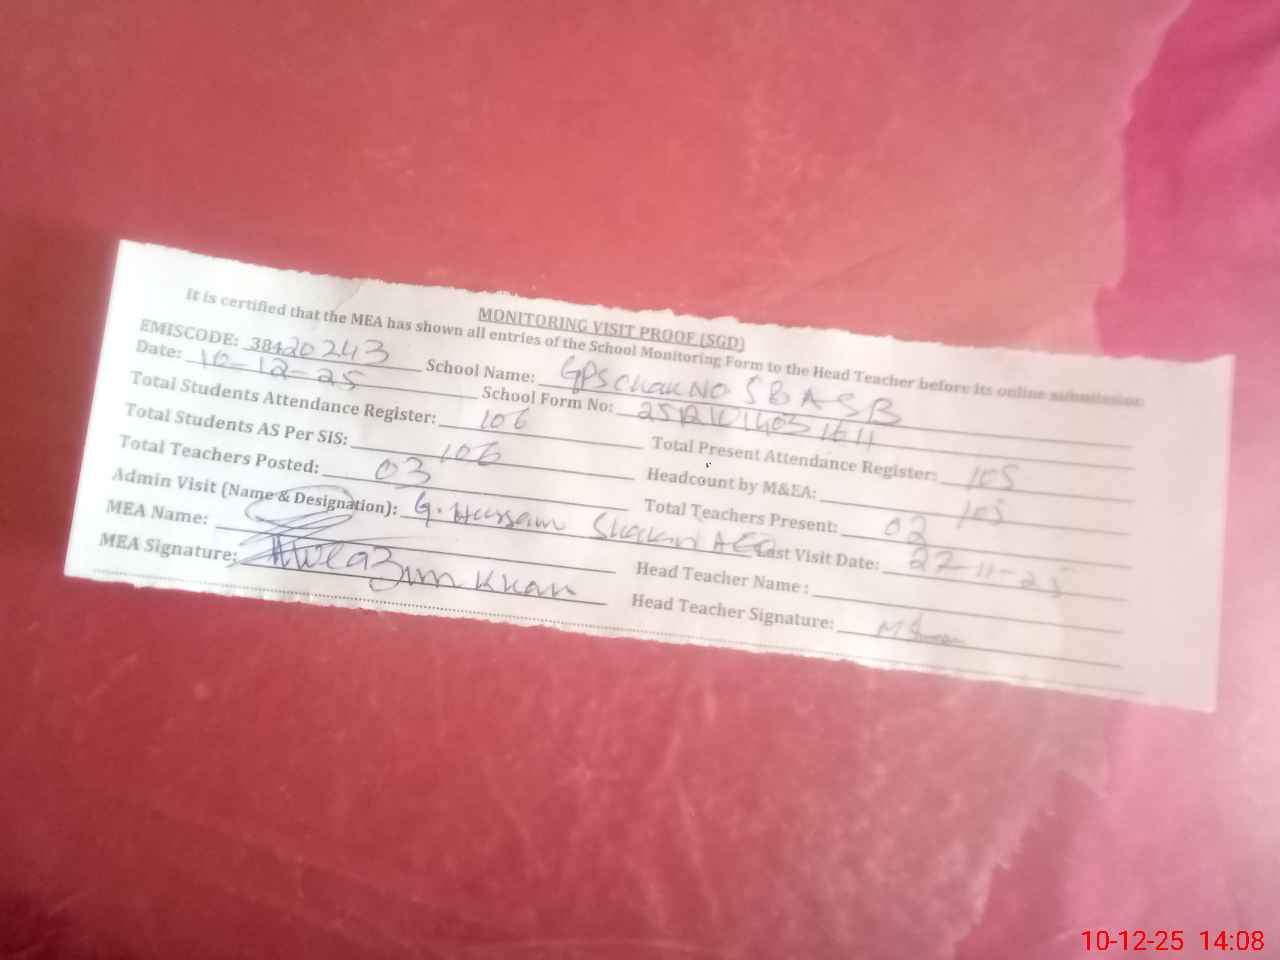 MONITORING VISIT PROOF (SGD)
It is certified that the MEA has shown all entries of the School Monitoring Form to the Head Teacher before its online submission
EMISCODE: 38420243 School Name: GPS Chak NO 5B A SB
Date: 10-12-25 School Form No:
Total Students Attendance Register: 106 Total Present Attendance Register: 105
Total Students AS Per SIS: 106 Headcount by M&EA: 105
Total Teachers Posted: 03 Total Teachers Present: 02
Admin Visit (Name & Designation): G. Hussain AEO Last Visit Date: 27-11-25
MEA Name: Head Teacher Name :
MEA Signature: Khan Head Teacher Signature:
10-12-25 14:08